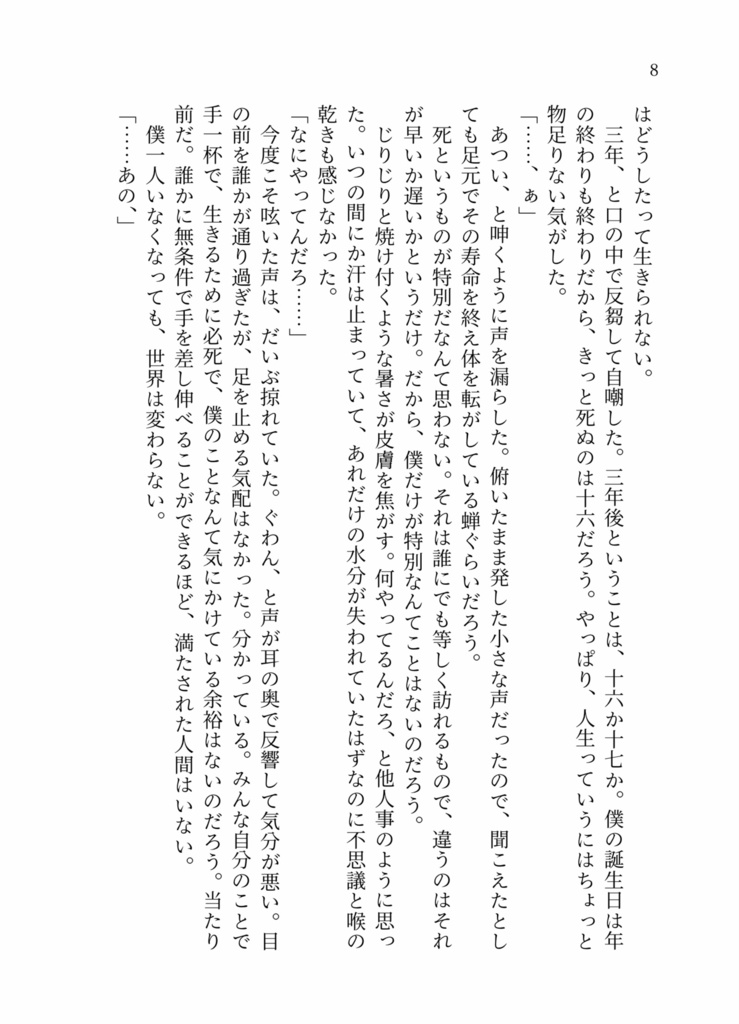 8
はどうしたって生きられない。
　三年、と口の中で反芻して自嘲した。三年後ということは、十六か十七か。僕の誕生日は年
の終わりも終わりだから、きっと死ぬのは十六だろう。やっぱり、人生っていうにはちょっと
物足りない気がした。
「……、ぁ」
　あつい、と呻くように声を漏らした。俯いたまま発した小さな声だったので、聞こえたとし
ても足元でその寿命を終え体を転がしている蝉ぐらいだろう。
　死というものが特別だなんて思わない。それは誰にでも等しく訪れるもので、違うのはそれ
が早いか遅いかというだけ。だから、僕だけが特別なんてことはないのだろう。
　じりじりと焼け付くような暑さが皮膚を焦がす。何やってるんだろ、と他人事のように思っ
た。いつの間にか汗は止まっていて、あれだけの水分が失われていたはずなのに不思議と喉の
乾きも感じなかった。
「なにやってんだろ……」
　今度こそ呟いた声は、だいぶ掠れていた。ぐわん、と声が耳の奥で反響して気分が悪い。目
の前を誰かが通り過ぎたが、足を止める気配はなかった。分かっている。みんな自分のことで
手一杯で、生きるために必死で、僕のことなんて気にかけている余裕はないのだろう。当たり
前だ。誰かに無条件で手を差し伸べることができるほど、満たされた人間はいない。
　僕一人いなくなっても、世界は変わらない。
「……あの、」